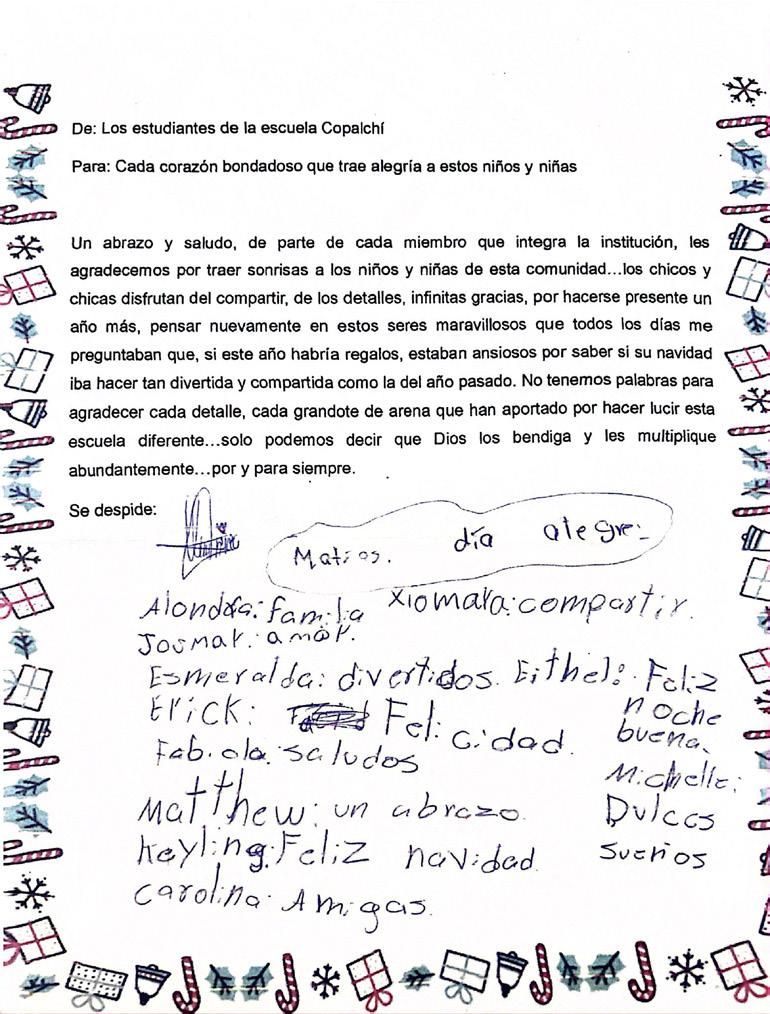 De: Los estudiantes de la escuela Copalchí
Para: Cada corazón bondadoso que trae alegría a estos niños y niñas
Un abrazo y saludo, de parte de cada miembro que integra la institución, les
agradecemos por traer sonrisas a los niños y niñas de esta comunidad...los chicos y
chicas disfrutan del compartir, de los detalles, infinitas gracias, por hacerse presente un
año más, pensar nuevamente en estos seres maravillosos que todos los días me
preguntaban que, si este año habría regalos, estaban ansiosos por saber si su navidad
iba hacer tan divertida y compartida como la del año pasado. No tenemos palabras para
agradecer cada detalle, cada grandote de arena que han aportado por hacer lucir esta
escuela diferente...solo podemos decir que Dios los bendiga y les multiplique
abundantemente...por y para siempre.
Se despide:
Matios. día alegre.
Alondra: familia Xiomara: compartir.
Josmar: amor.
Esmeralda: divertidos. Eithel: Feliz
noche
buena.
Erick: Felicidad.
Fabiola: saludos
Michelle:
Dulces
sueños
Matthew: un abrazo.
Keyling: Feliz navidad
Carolina: Amigas.